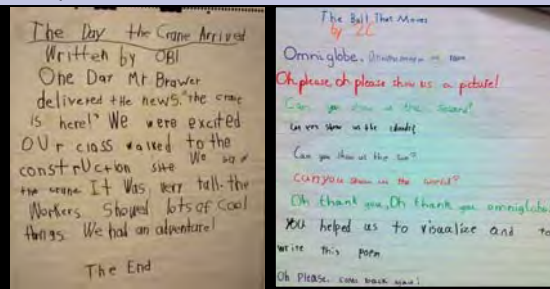 The Day the Crane Arrived
Written by OBI
One Dar Mr Brawer
delivered tHe news. "the crane
is here!" We were excited
OUr class walked to the
construction site We
the crane It Was very tall. the
Workers Showed lots of Cool
things. We had an adventure!
The End
The Ball That Moves
by 2C
Omniglobe,
Oh please, oh please show us a picture!
Can you show us the
Can you show us the
Can you show us the sun?
Can you show us the world?
Oh thank you, Oh thank you omniglobe
You helped us to visualize and to
write this poem
Oh Please, come back again!